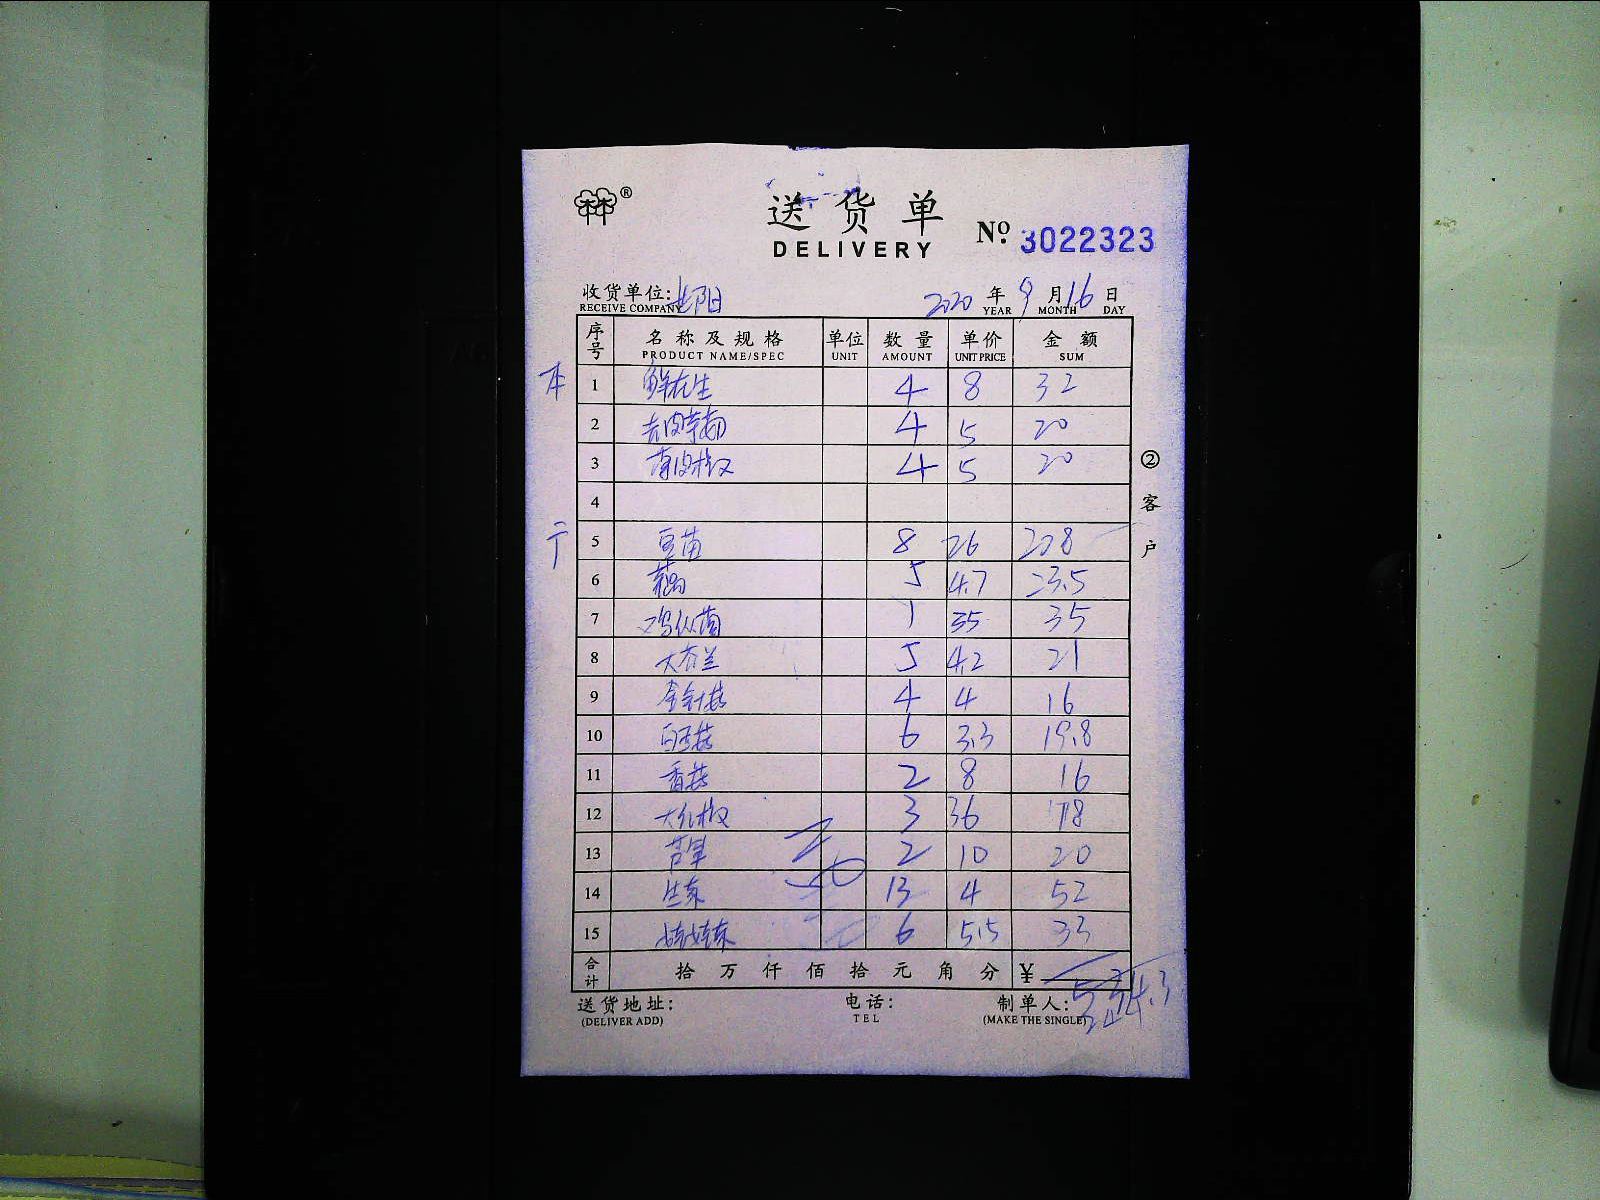 ®
送货单
DELIVERY
No. 3022323
收货单位:
RECEIVE COMPANY
2020 年 9 月 16 日
YEAR MONTH DAY
序号 名称及规格 单位 数量 单价 金额
PRODUCT NAME/SPEC UNIT AMOUNT UNIT PRICE SUM
本 1 鲜花生 4 8 32
2 4 5 20
3 4 5 20
② 客户
4
于 5 豆苗 8 26 208
6 藕 5 4.7 23.5
7 鸡纵菌 1 35 35
8 大芥兰 5 4.2 21
9 金针菇 4 4 16
10 白玉菇 6 3.3 19.8
11 香菇 2 8 16
12 大红椒 3 36 18
13 芦笋 2 10 20
14 生菜 13 4 52
15 娃娃菜 6 5.5 33
合计 拾万仟佰拾元角分 ¥
534.3
送货地址: 电话: 制单人:
(DELIVER ADD) TEL (MAKE THE SINGLE)